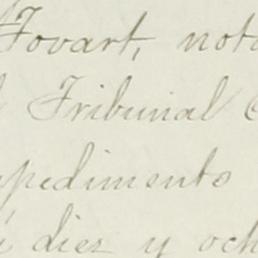 Tovart, nota
l Tribunal C
pedimento
i diez y och